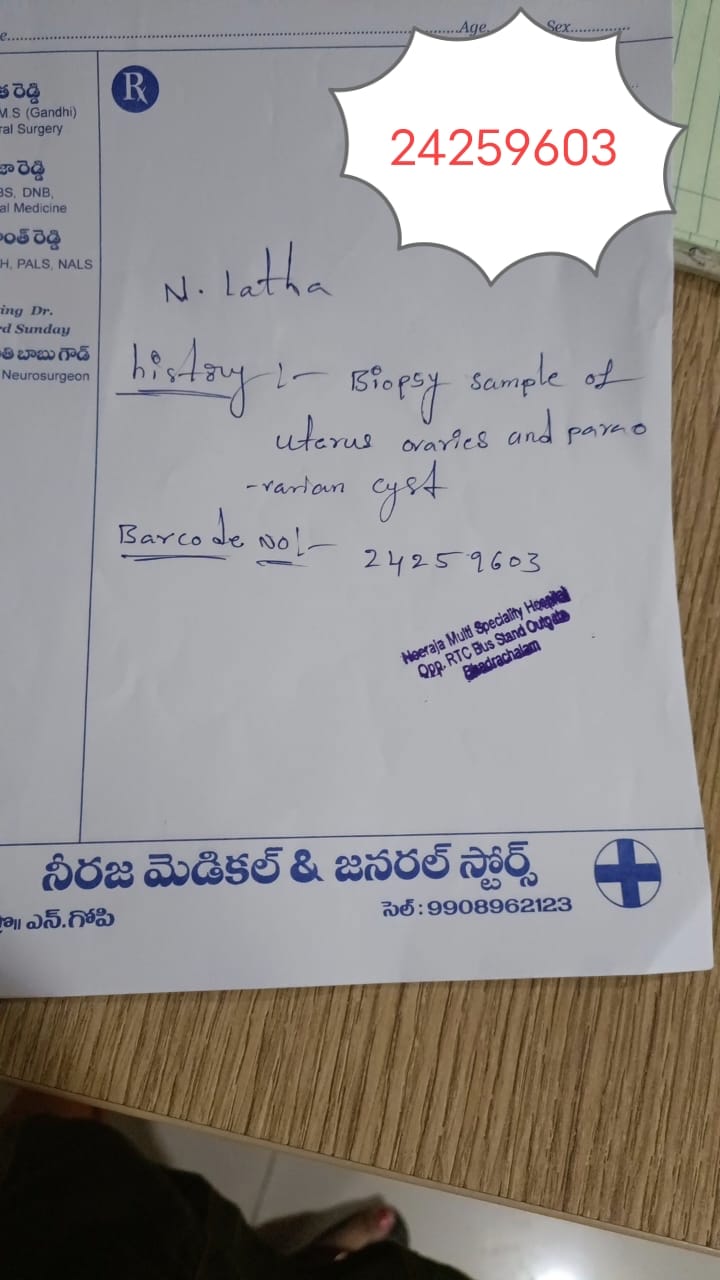 e.......Age.......Sex.......
24259603
త రెడ్డి
M.S (Gandhi)
ral Surgery
జా రెడ్డి
BS, DNB,
al Medicine
ంత్ రెడ్డి
H, PALS, NALS
ing Dr.
rd Sunday
తి బాబు గౌడ్
Neurosurgeon
Rx
N. Latha
history :- Biopsy sample of
uterus ovaries and parao
-varian cyst
Barcode No:- 24259603
Neeraja Multi Speciality Hospital
Opp. RTC Bus Stand Outgate
Bhadrachalam
నీరజ మెడికల్ & జనరల్ స్టోర్స్
ప్రొ॥ ఎన్.గోపి
సెల్ : 9908962123